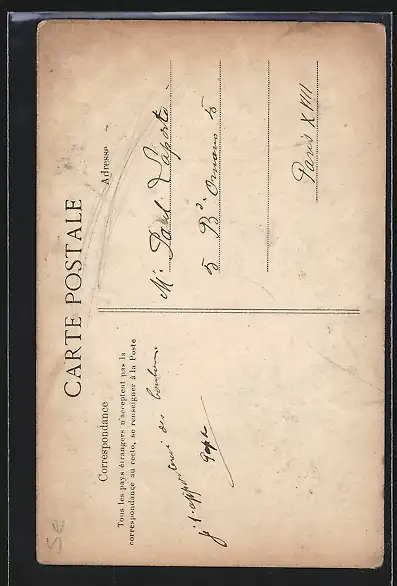 CARTE POSTALE
Correspondance
Tous les pays étrangers n'acceptent pas la
correspondance au recto, se renseigner à la Poste
Adresse
je t'apporterai des bonbons
Mr Paul Laporte
5 Bd Ornano 5
Paris XVIII
5€